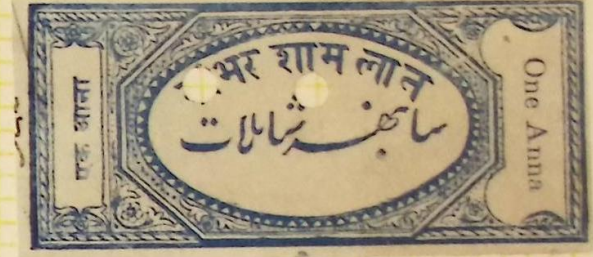 एक आना
सांभर शामलात
سانبھر شاملات
One Anna